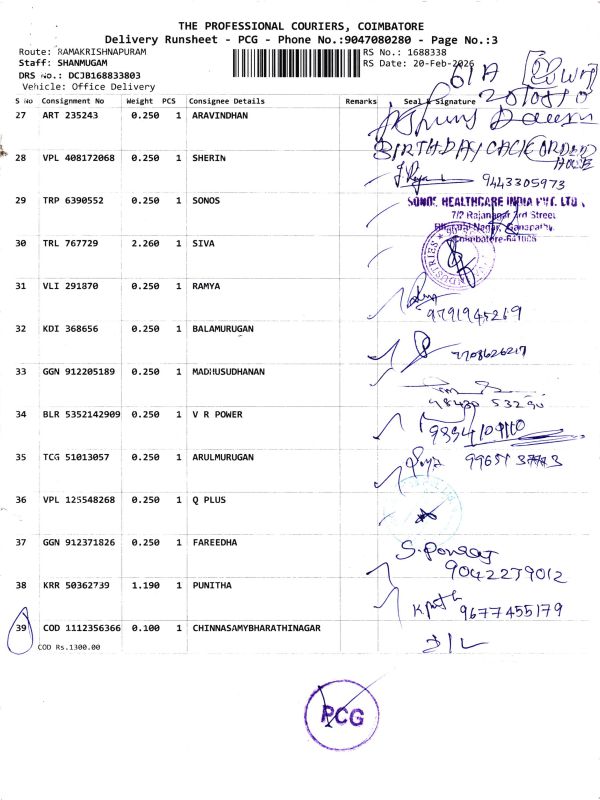 THE PROFESSIONAL COURIERS, COIMBATORE
Delivery Runsheet - PCG - Phone No.:9047080280 - Page No.:3
Route: RAMAKRISHNAPURAM
RS No.: 1688338
Staff: SHANMUGAM
RS Date: 20-Feb-2026
DRS No.: DCJB168833803
Vehicle: Office Delivery
61A
S No Consignment No Weight PCS Consignee Details Remarks Seal & Signature
27 ART 235243 0.250 1 ARAVINDHAN
BIRTHDAY CACK ORDER
HOUSE
28 VPL 408172068 0.250 1 SHERIN
9443305973
29 TRP 6390552 0.250 1 SONOS
SONOS HEALTHCARE INDIA PVT. LTD.,
7/2 Rajanagar 3rd Street
Bharathi Nagar, Ganapathy,
Coimbatore-641006
30 TRL 767729 2.260 1 SIVA
INDUSTRIES
31 VLI 291870 0.250 1 RAMYA
9791945269
32 KDI 368656 0.250 1 BALAMURUGAN
7708626217
33 GGN 912205189 0.250 1 MADHUSUDHANAN
34 BLR 5352142909 0.250 1 V R POWER
35 TCG 51013057 0.250 1 ARULMURUGAN
36 VPL 125548268 0.250 1 Q PLUS
37 GGN 912371826 0.250 1 FAREEDHA
S. Ponraj
9042279012
38 KRR 50362739 1.190 1 PUNITHA
9677455179
39 COD 1112356366 0.100 1 CHINNASAMYBHARATHINAGAR
D/L
COD Rs.1300.00
PCG